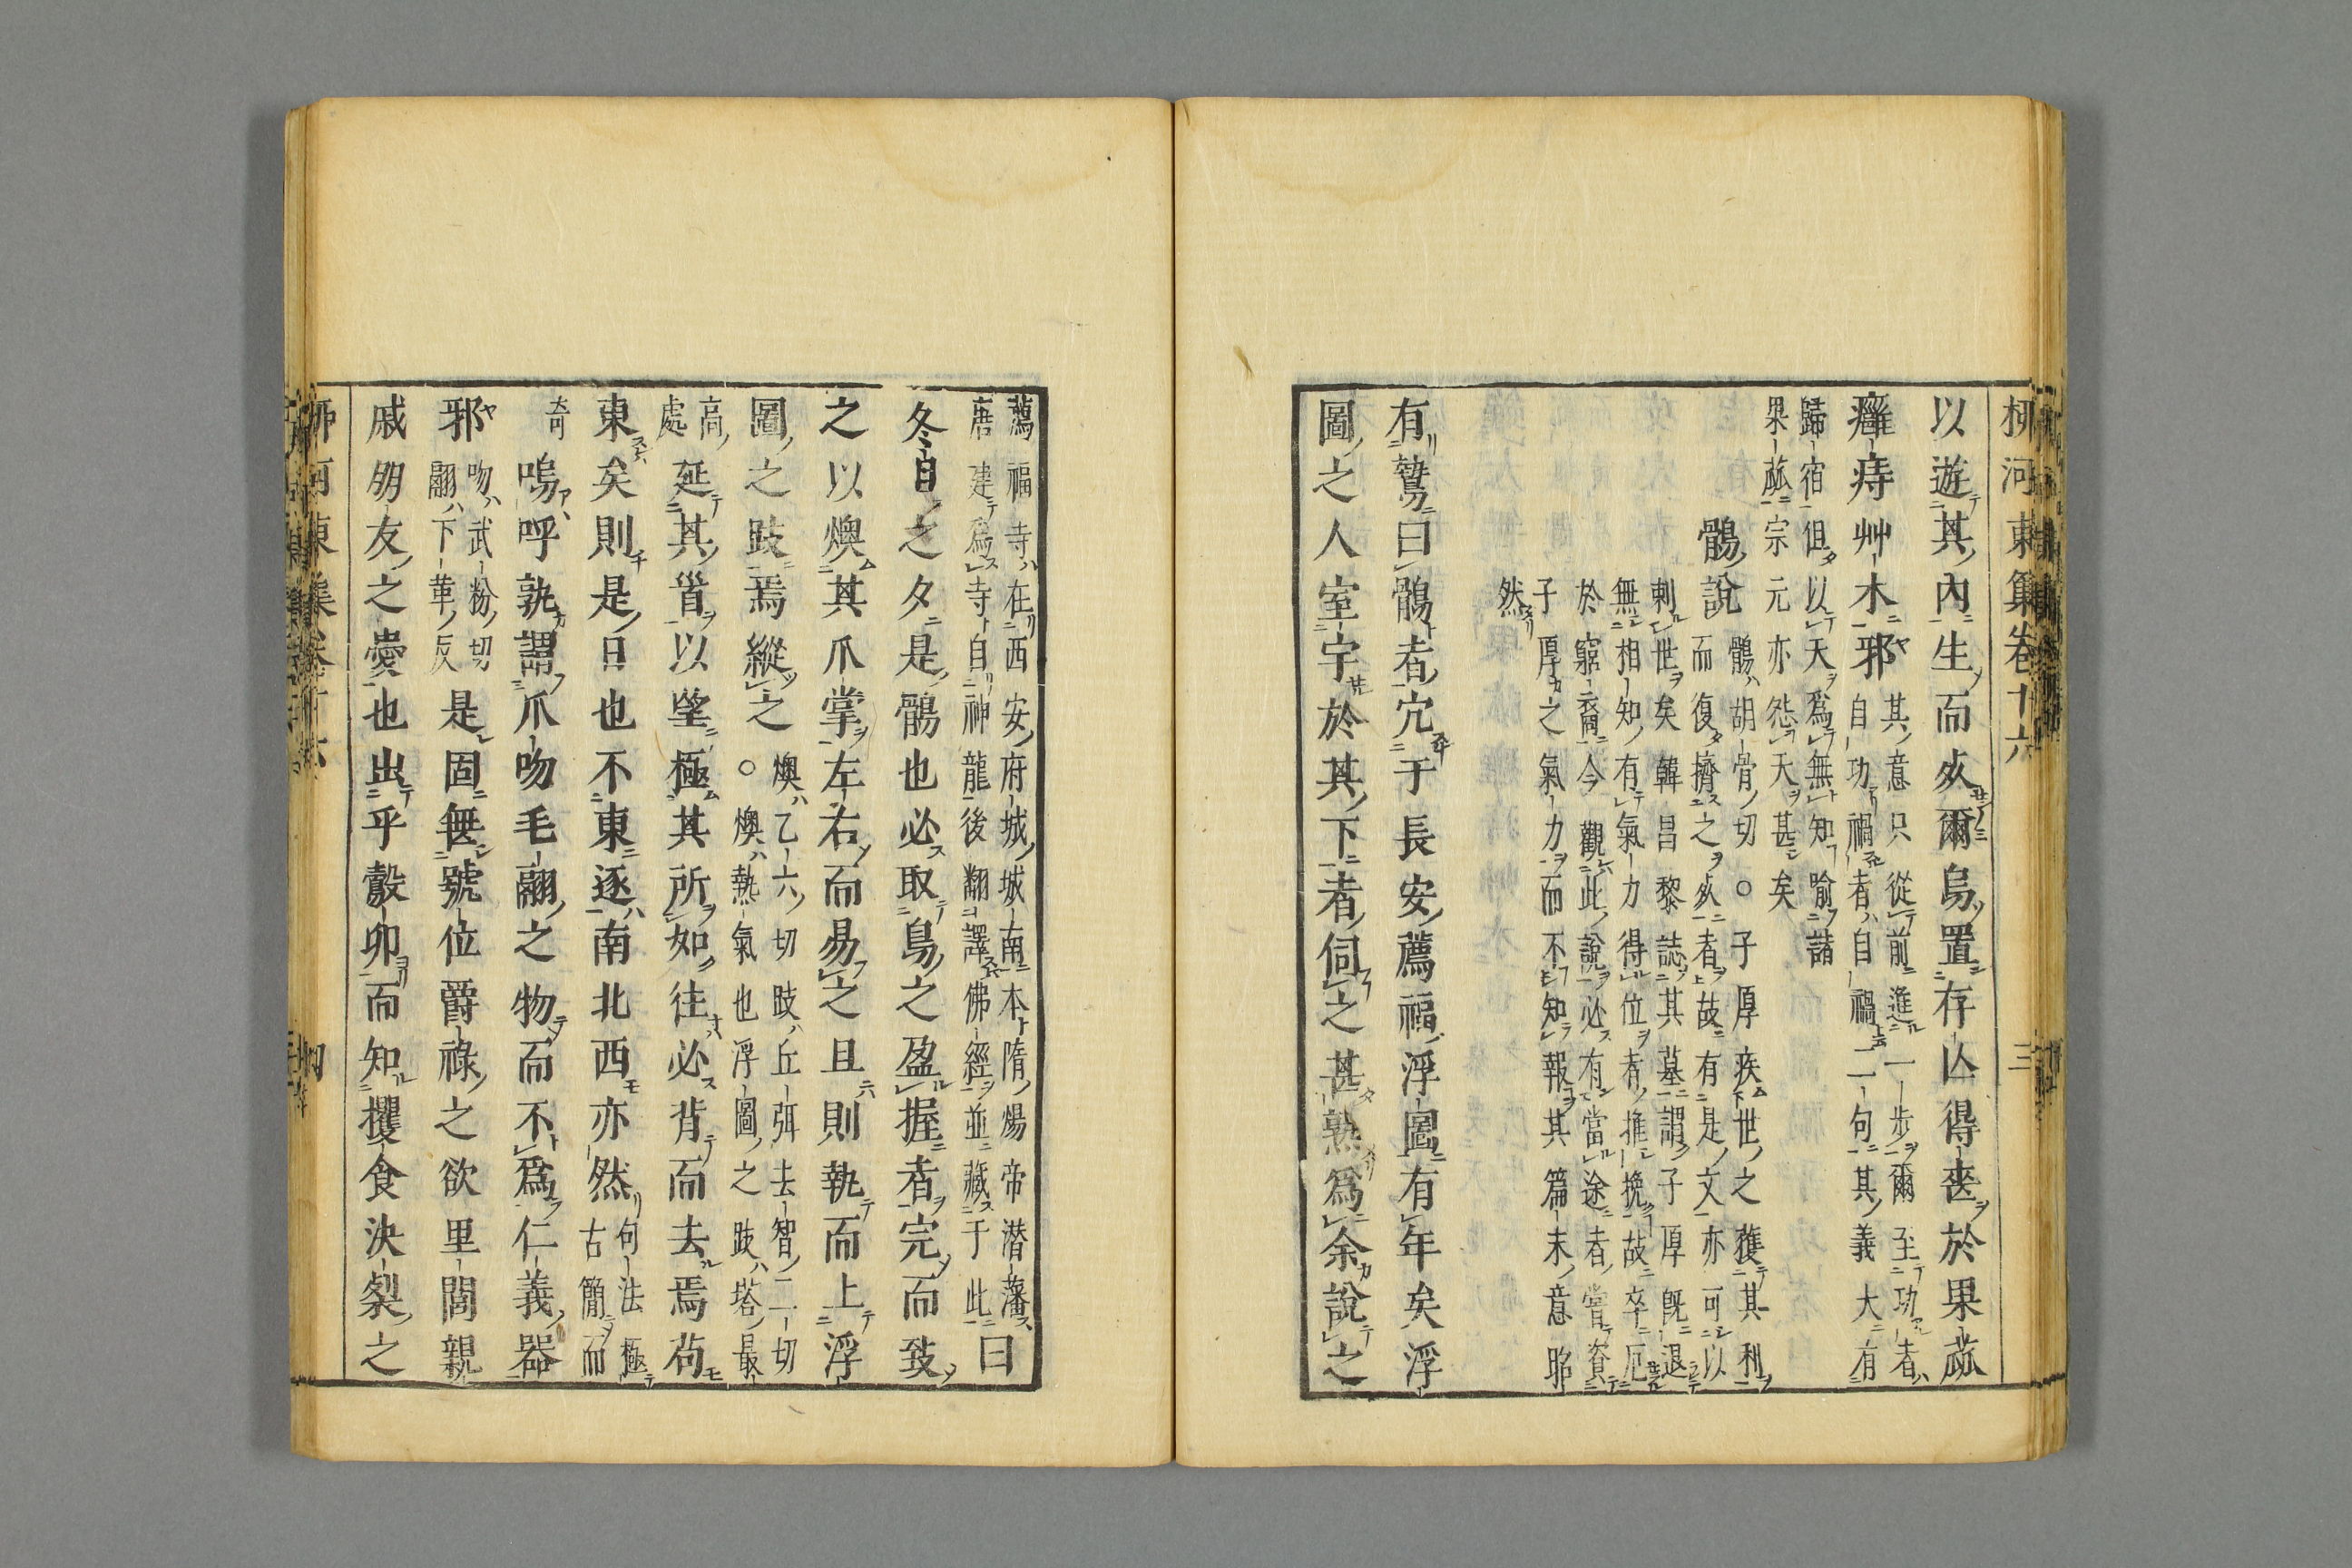 柳河東集卷十六 三
以遊其內生而死爾烏置存亡得喪於果蓏
癰痔艸木邪 其意只從前進一步爾至功者
自功禍者自禍二句其義大有
歸宿但以天爲無知喻諸
果蓏宗元亦怨天甚矣
鶻說 鶻胡骨切○子厚疾世之獲其利
而復擠之死者故有是文亦可以
刺世矣韓昌黎誌其墓謂子厚旣退
無相知有氣力得位者推挽故卒厄
於窮裔今觀此說必有當途者嘗資
子厚之氣力而不知報其篇末意昭
然
有鷙曰鶻者穴于長安薦福浮圖有年矣浮
圖之人室宇於其下者伺之甚熟爲余說之
薦福寺在西安府城城南本隋煬帝潜藩
唐建爲寺自神龍後翻譯佛經並藏于此 曰
冬日之夕是鶻也必取鳥之盈握者完而致
之以燠其爪掌左右而易之旦則執而上浮
圖之跂焉縱之 燠乙六切跂丘弭去智二切
○燠熱氣也浮圖之跂塔最
高
處 延其首以望極其所如往必背而去焉苟
東矣則是日也不東逐南北西亦然 句法極
古簡而
奇 嗚呼孰謂爪吻毛翮之物而不爲仁義器
邪 吻武粉切
翮下革反 是固無號位爵祿之欲里閭親
戚朋友之愛也出乎鷇卵而知攫食決裂之
柳河東集卷十六 四